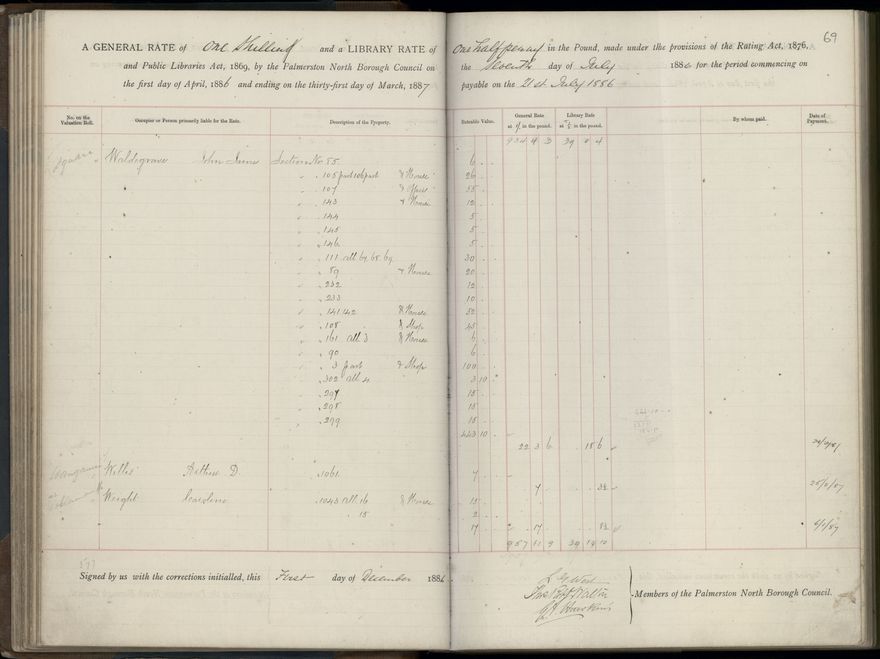 69
A GENERAL RATE of One Shilling and a LIBRARY RATE of One halfpenny in the Pound, made under the provisions of the Rating Act, 1876,
and Public Libraries Act, 1869, by the Palmerston North Borough Council on the Seventh day of July 1886 for the period commencing on
the first day of April, 1886 and ending on the thirty-first day of March, 1887 payable on the 21st July 1886
No. on the Valuation Roll. Occupier or Person primarily liable for the Rate. Description of the Property. Rateable Value. General Rate at 1/ in the pound. Library Rate at in the pound. By whom paid. Date of Payment.
934 4 3 39 4
Square Waldegrave John Section No. 55 6
" " 105 part 106 part & House 26
" " 107 55
" " 143 & House 12
" " 144 5
" " 145 5
" " 146 5
" " 111 all. 67. 68. 69 30
" " 89 & House 20
" " 232 12
" " 233 10
" " 141 142 & House 52
" " 108 & Shop 45
" " 161 all. 3 & House 6
" " 90 6
" " 3 part & Shop 100
" " 302 all. 4 3 10
" " 297 15
" " 298 15
" " 299 15
443 10
22 3 6 18 6
Willis Arthur D. " 1061 7
7 3½
Wright Caroline " 1043 all. 16 & House 15
" 15 2
17 17 8½ 6/1/87
957 11 9 39 19 10
Signed by us with the corrections initialled, this First day of December 1886 Members of the Palmerston North Borough Council.